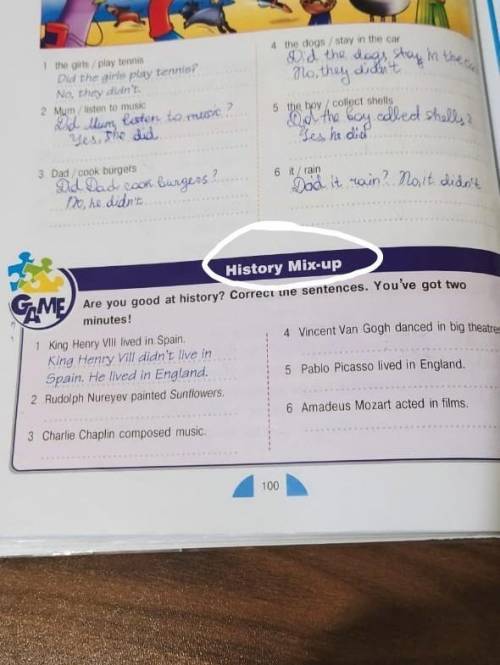 1 the girls / play tennis
Did the girls play tennis?
No, they didn't.
2 Mum / listen to music
Did Mum listen to music?
Yes, she did
3 Dad / cook burgers
Did Dad cook burgers?
No, he didn't
4 the dogs / stay in the car
Did the dogs stay in the
No, they didn't
5 the boy / collect shells
Did the boy collect shells?
Yes he did
6 it / rain
Did it rain? No, it didn't
History Mix-up
GAME
Are you good at history? Correct the sentences. You've got two
minutes!
1 King Henry VIII lived in Spain.
King Henry VIII didn't live in
Spain. He lived in England.
2 Rudolph Nureyev painted Sunflowers.
3 Charlie Chaplin composed music.
4 Vincent Van Gogh danced in big theatres
5 Pablo Picasso lived in England.
6 Amadeus Mozart acted in films.
100